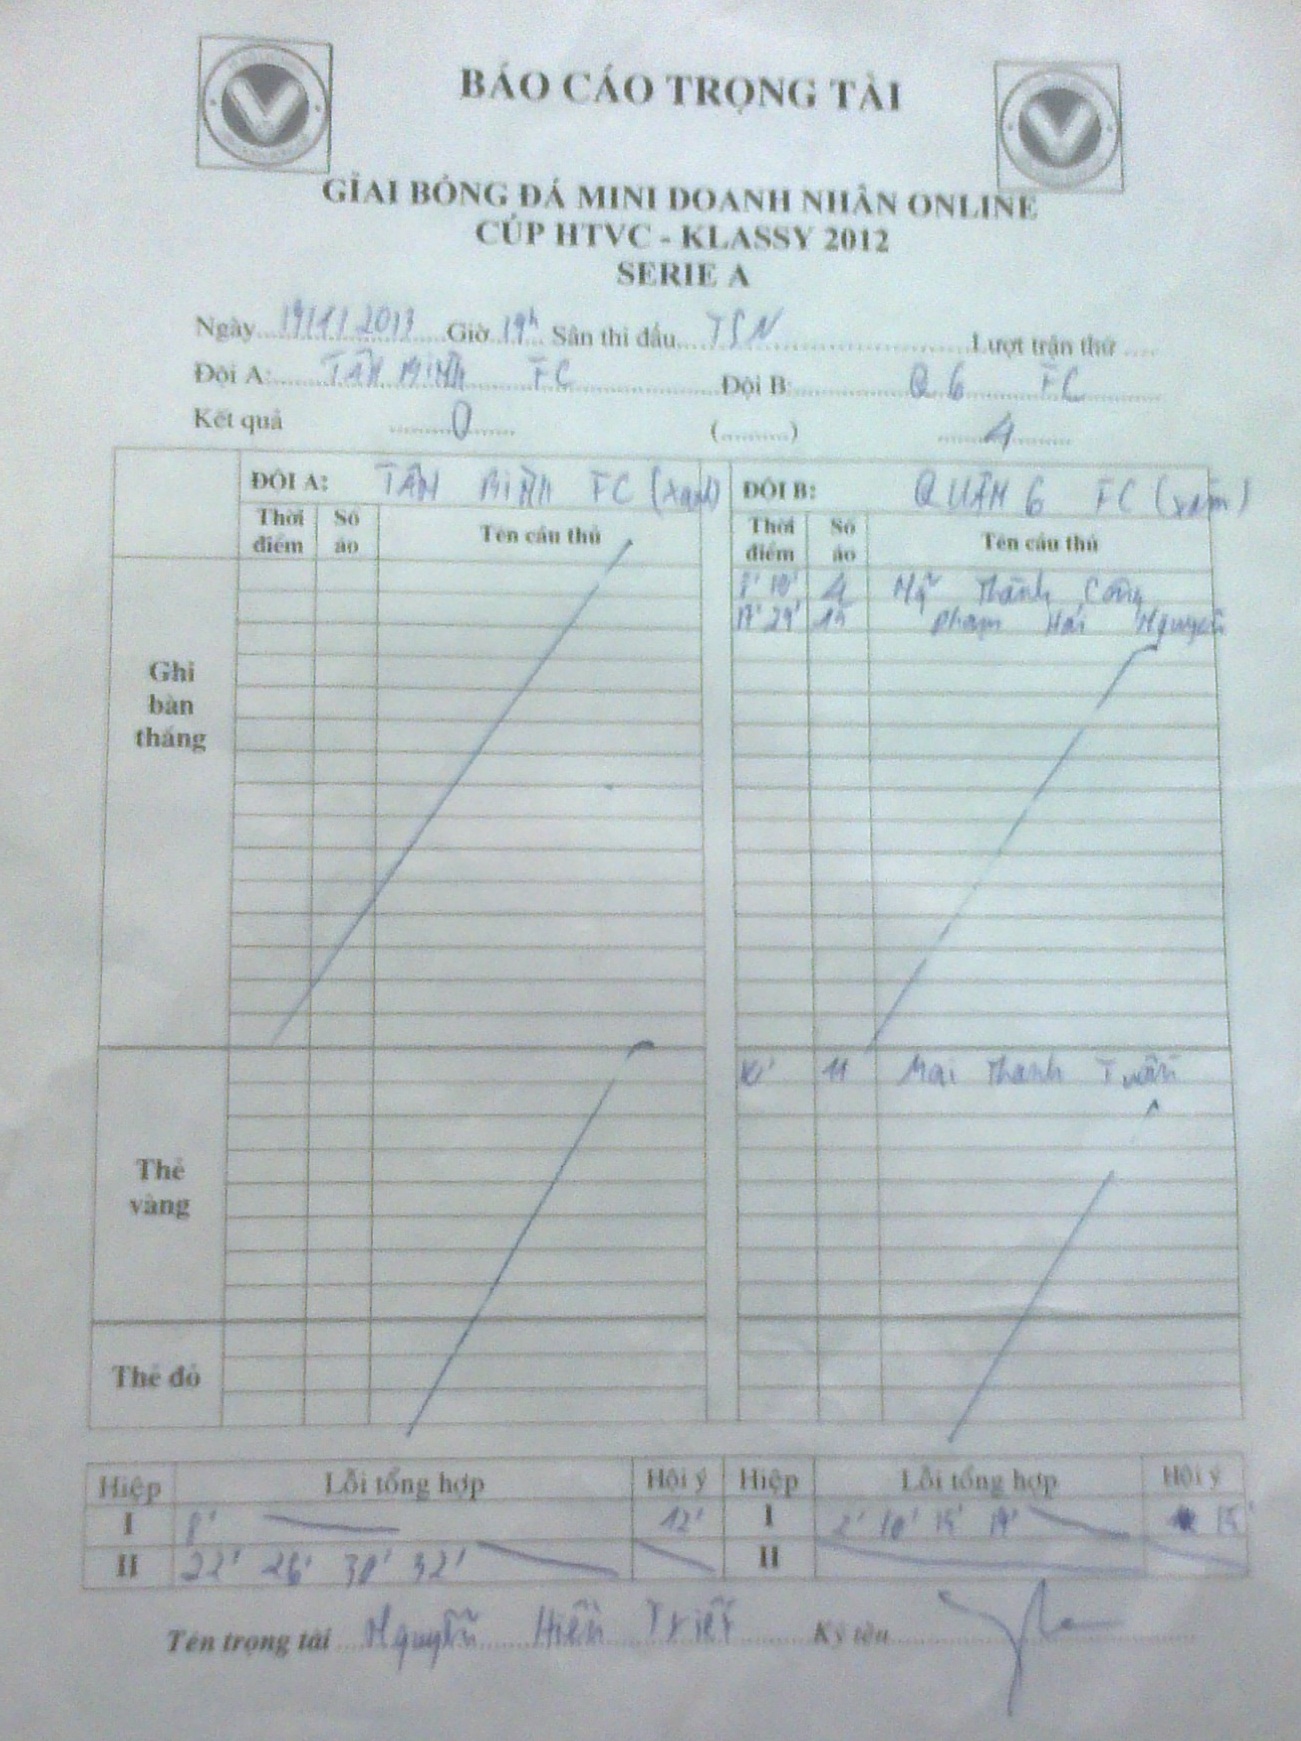 BÁO CÁO TRỌNG TÀI
GIẢI BÓNG ĐÁ MINI DOANH NHÂN ONLINE
CÚP HTVC - KLASSY 2012
SERIE A
Ngày 19/1/2013 Giờ 19h Sân thi đấu TSN Lượt trận thứ
Đội A: TÂN BÌNH FC Đội B: Q 6 FC
Kết quả 0 (..........) 4
ĐỘI A: TÂN BÌNH FC (xanh) ĐỘI B: QUẬN 6 FC (xám)
Thời điểm Số áo Tên cầu thủ Thời điểm Số áo Tên cầu thủ
Ghi bàn thắng
8' 18' 4 Thành Công
19' 29' 15 Phạm Hải Nguyên
Thẻ vàng
10' 11 Mai Thanh Tuấn
Thẻ đỏ
Hiệp Lỗi tổng hợp Hội ý Hiệp Lỗi tổng hợp Hội ý
I 8' 12' I 2' 10' 15' 19' 15'
II 22' 26' 30' 32' II
Tên trọng tài Nguyễn Hiền Triết Ký tên